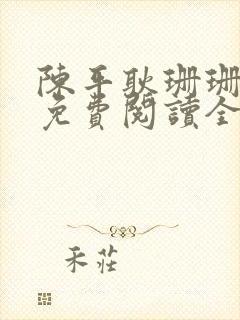 陳平耿珊珊
免費閱讀全
禾莊